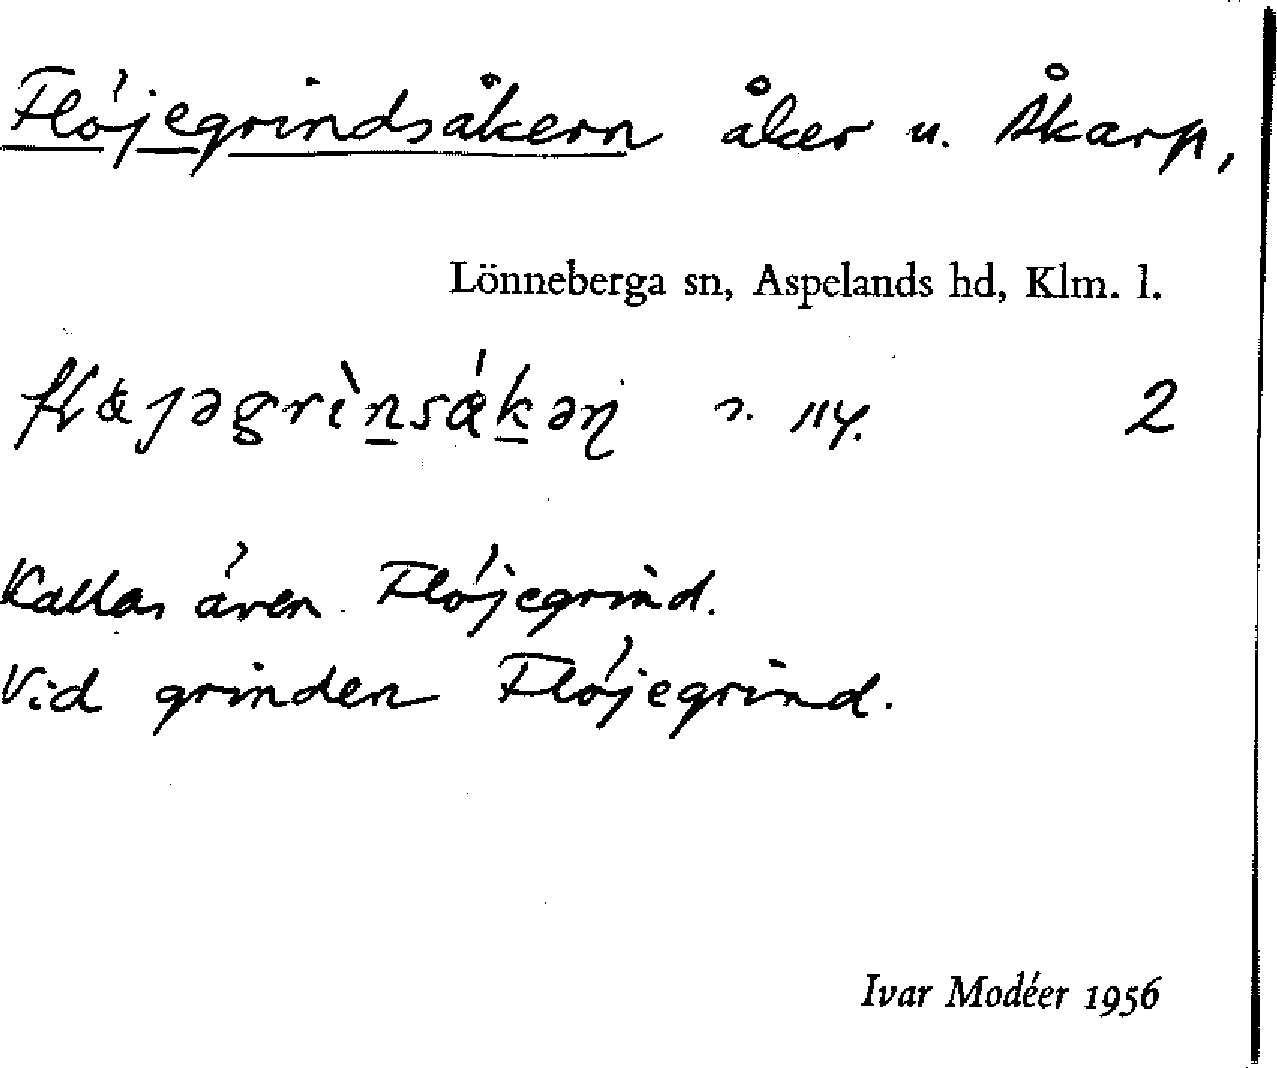 Flöjegrindsåkern åker u. Åkarp,
Lönneberga sn, Aspelands hd, Klm. l.
2
Kallas även Flöjegrind.
Vid grinden Flöjegrind.
Ivar Modéer 1956